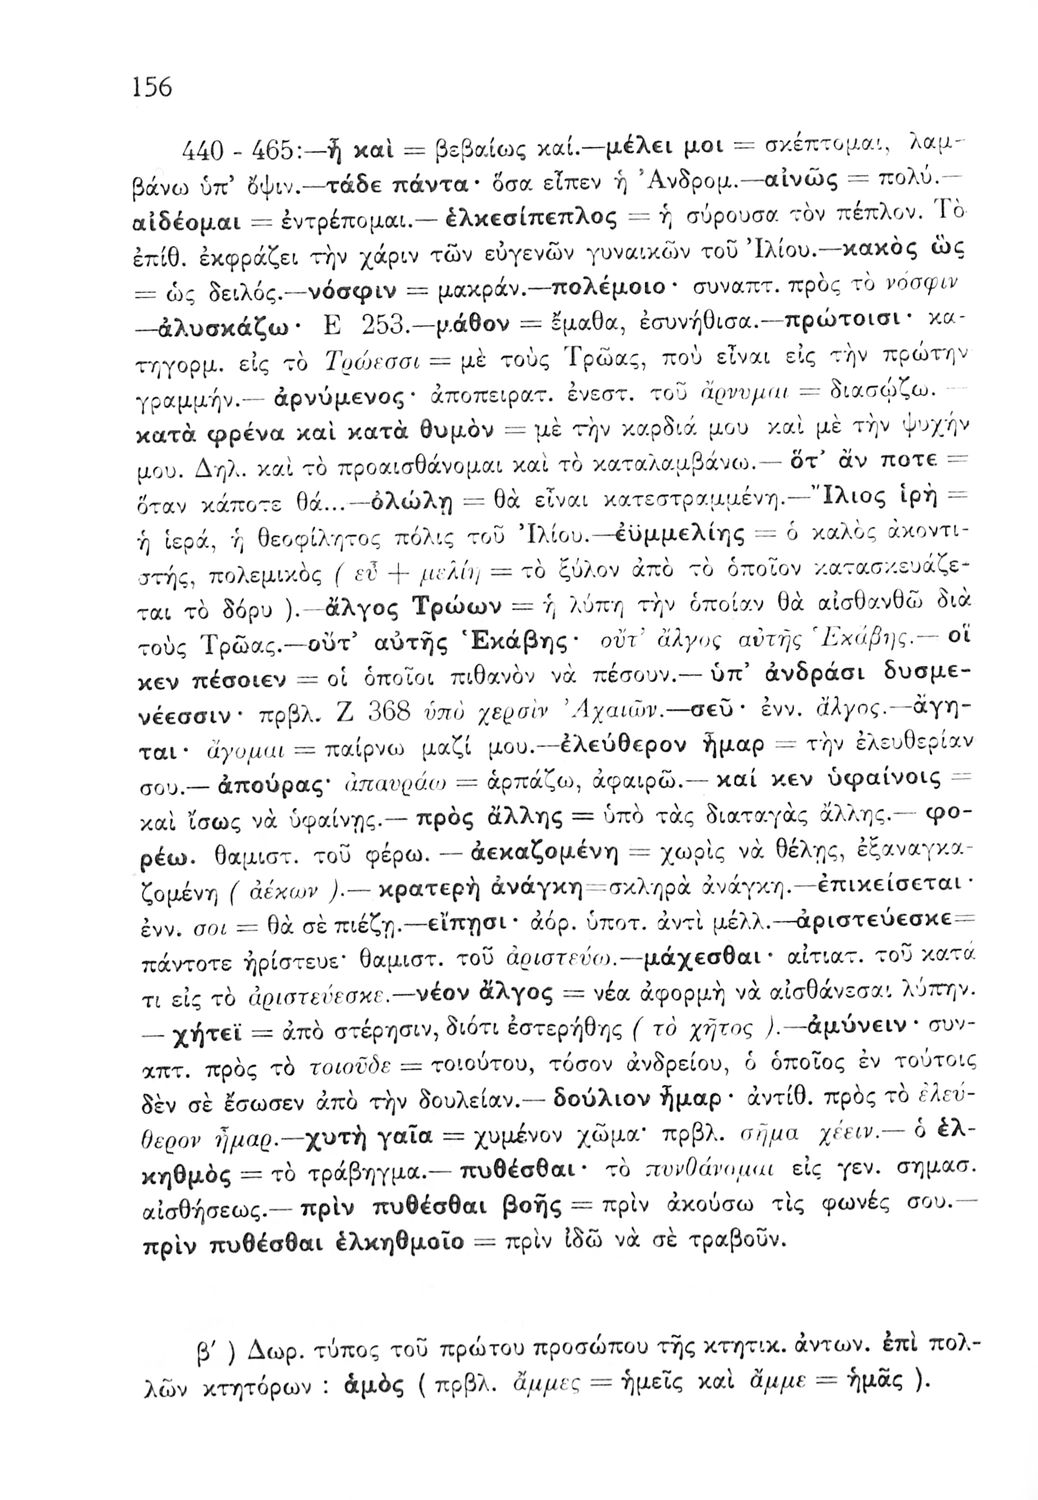 156
440 - 465:—ἦ καὶ = βεβαίως καί.—μέλει μοι = σκέπτομαι, λαμ-
βάνω ὑπ’ ὄψιν.—τάδε πάντα· ὅσα εἶπεν ἡ Ἀνδρομ.—αἰνῶς = πολύ.—
αἰδέομαι = ἐντρέπομαι.— ἑλκεσίπεπλος = ἡ σύρουσα τὸν πέπλον. Τὸ
ἐπίθ. ἐκφράζει τὴν χάριν τῶν εὐγενῶν γυναικῶν τοῦ Ἰλίου.—κακὸς ὣς
= ὡς δειλός.—νόσφιν = μακράν.—πολέμοιο· συναπτ. πρὸς τὸ νόσφιν
—ἀλυσκάζω· Ε 253.—μάθον = ἔμαθα, ἐσυνήθισα.—πρώτοισι· κα-
τηγορμ. εἰς τὸ Τρώεσσι = μὲ τοὺς Τρῶας, ποὺ εἶναι εἰς τὴν πρώτην
γραμμήν.— ἀρνύμενος· ἀποπειρατ. ἐνεστ. τοῦ ἄρνυμαι = διασῴζω. —
κατὰ φρένα καὶ κατὰ θυμὸν = μὲ τὴν καρδιά μου καὶ μὲ τὴν ψυχήν
μου. Δηλ. καὶ τὸ προαισθάνομαι καὶ τὸ καταλαμβάνω.— ὅτ’ ἄν ποτε =
ὅταν κάποτε θά...—ὀλώλῃ = θὰ εἶναι κατεστραμμένη.—Ἴλιος ἱρὴ =
ἡ ἱερά, ἡ θεοφίλητος πόλις τοῦ Ἰλίου.—ἐϋμμελίης = ὁ καλὸς ἀκοντι-
στής, πολεμικὸς ( εὖ + μελίη = τὸ ξύλον ἀπὸ τὸ ὁποῖον κατασκευάζε-
ται τὸ δόρυ ).—ἄλγος Τρώων = ἡ λύπη τὴν ὁποίαν θὰ αἰσθανθῶ διὰ
τοὺς Τρῶας.—οὔτ’ αὐτῆς Ἑκάβης· οὔτ’ ἄλγος αὐτῆς Ἑκάβης.— οἵ
κεν πέσοιεν = οἱ ὁποῖοι πιθανὸν νὰ πέσουν.— ὑπ’ ἀνδράσι δυσμε-
νέεσσιν· πρβλ. Ζ 368 ὑπὸ χερσὶν Ἀχαιῶν.—σεῦ· ἐνν. ἄλγος.—ἄγη-
ται· ἄγομαι = παίρνω μαζί μου.—ἐλεύθερον ἦμαρ = τὴν ἐλευθερίαν
σου.— ἀπούρας· ἀπαυράω = ἁρπάζω, ἀφαιρῶ.— καί κεν ὑφαίνοις =
καὶ ἴσως νὰ ὑφαίνῃς.— πρὸς ἄλλης = ὑπὸ τὰς διαταγὰς ἄλλης.— φο-
ρέω. θαμιστ. τοῦ φέρω. — ἀεκαζομένη = χωρὶς νὰ θέλῃς, ἐξαναγκα-
ζομένη ( ἀέκων ).— κρατερὴ ἀνάγκη=σκληρὰ ἀνάγκη.—ἐπικείσεται·
ἐνν. σοι = θὰ σὲ πιέζῃ.—εἴπῃσι· ἀόρ. ὑποτ. ἀντὶ μέλλ.—ἀριστεύεσκε=
πάντοτε ἠρίστευε· θαμιστ. τοῦ ἀριστεύω.—μάχεσθαι· αἰτιατ. τοῦ κατά
τι εἰς τὸ ἀριστεύεσκε.—νέον ἄλγος = νέα ἀφορμὴ νὰ αἰσθάνεσαι λύπην.
— χήτεϊ = ἀπὸ στέρησιν, διότι ἐστερήθης ( τὸ χῆτος ).—ἀμύνειν· συν-
απτ. πρὸς τὸ τοιοῦδε = τοιούτου, τόσον ἀνδρείου, ὁ ὁποῖος ἐν τούτοις
δὲν σὲ ἔσωσεν ἀπὸ τὴν δουλείαν.— δούλιον ἦμαρ· ἀντίθ. πρὸς τὸ ἐλεύ-
θερον ἦμαρ.—χυτὴ γαῖα = χυμένον χῶμα· πρβλ. σῆμα χέειν.— ὁ ἑλ-
κηθμὸς = τὸ τράβηγμα.— πυθέσθαι· τὸ πυνθάνομαι εἰς γεν. σημασ.
αἰσθήσεως.— πρὶν πυθέσθαι βοῆς = πρὶν ἀκούσω τὶς φωνές σου.—
πρὶν πυθέσθαι ἑλκηθμοῖο = πρὶν ἰδῶ νὰ σὲ τραβοῦν.
β′ ) Δωρ. τύπος τοῦ πρώτου προσώπου τῆς κτητικ. ἀντων. ἐπὶ πολ-
λῶν κτητόρων : ἁμὸς ( πρβλ. ἄμμες = ἡμεῖς καὶ ἄμμε = ἡμᾶς ).